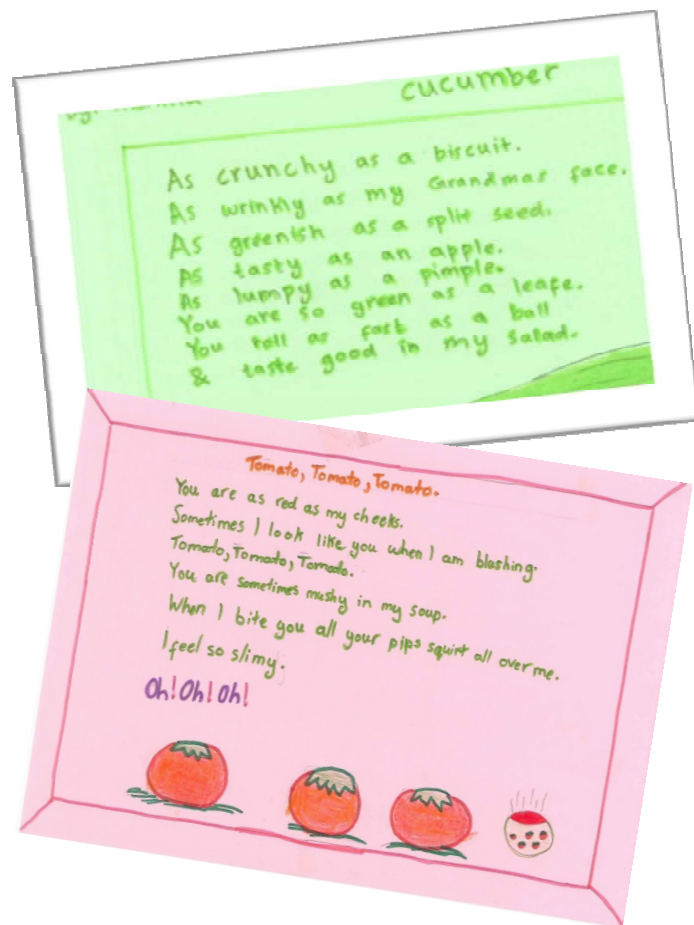 cucumber
As crunchy as a biscuit.
As wrinkly as my Grandmas face.
As greenish as a split seed.
As tasty as an apple.
As lumpy as a pimple.
You are so green as a leafe.
You roll as fast as a ball
& taste good in my salad.
Tomato, Tomato, Tomato.
You are as red as my cheeks.
Sometimes I look like you when I am blashing.
Tomato, Tomato, Tomato.
You are sometimes mushy in my soup.
When I bite you all your pips squirt all over me.
I feel so slimy.
Oh! Oh! Oh!